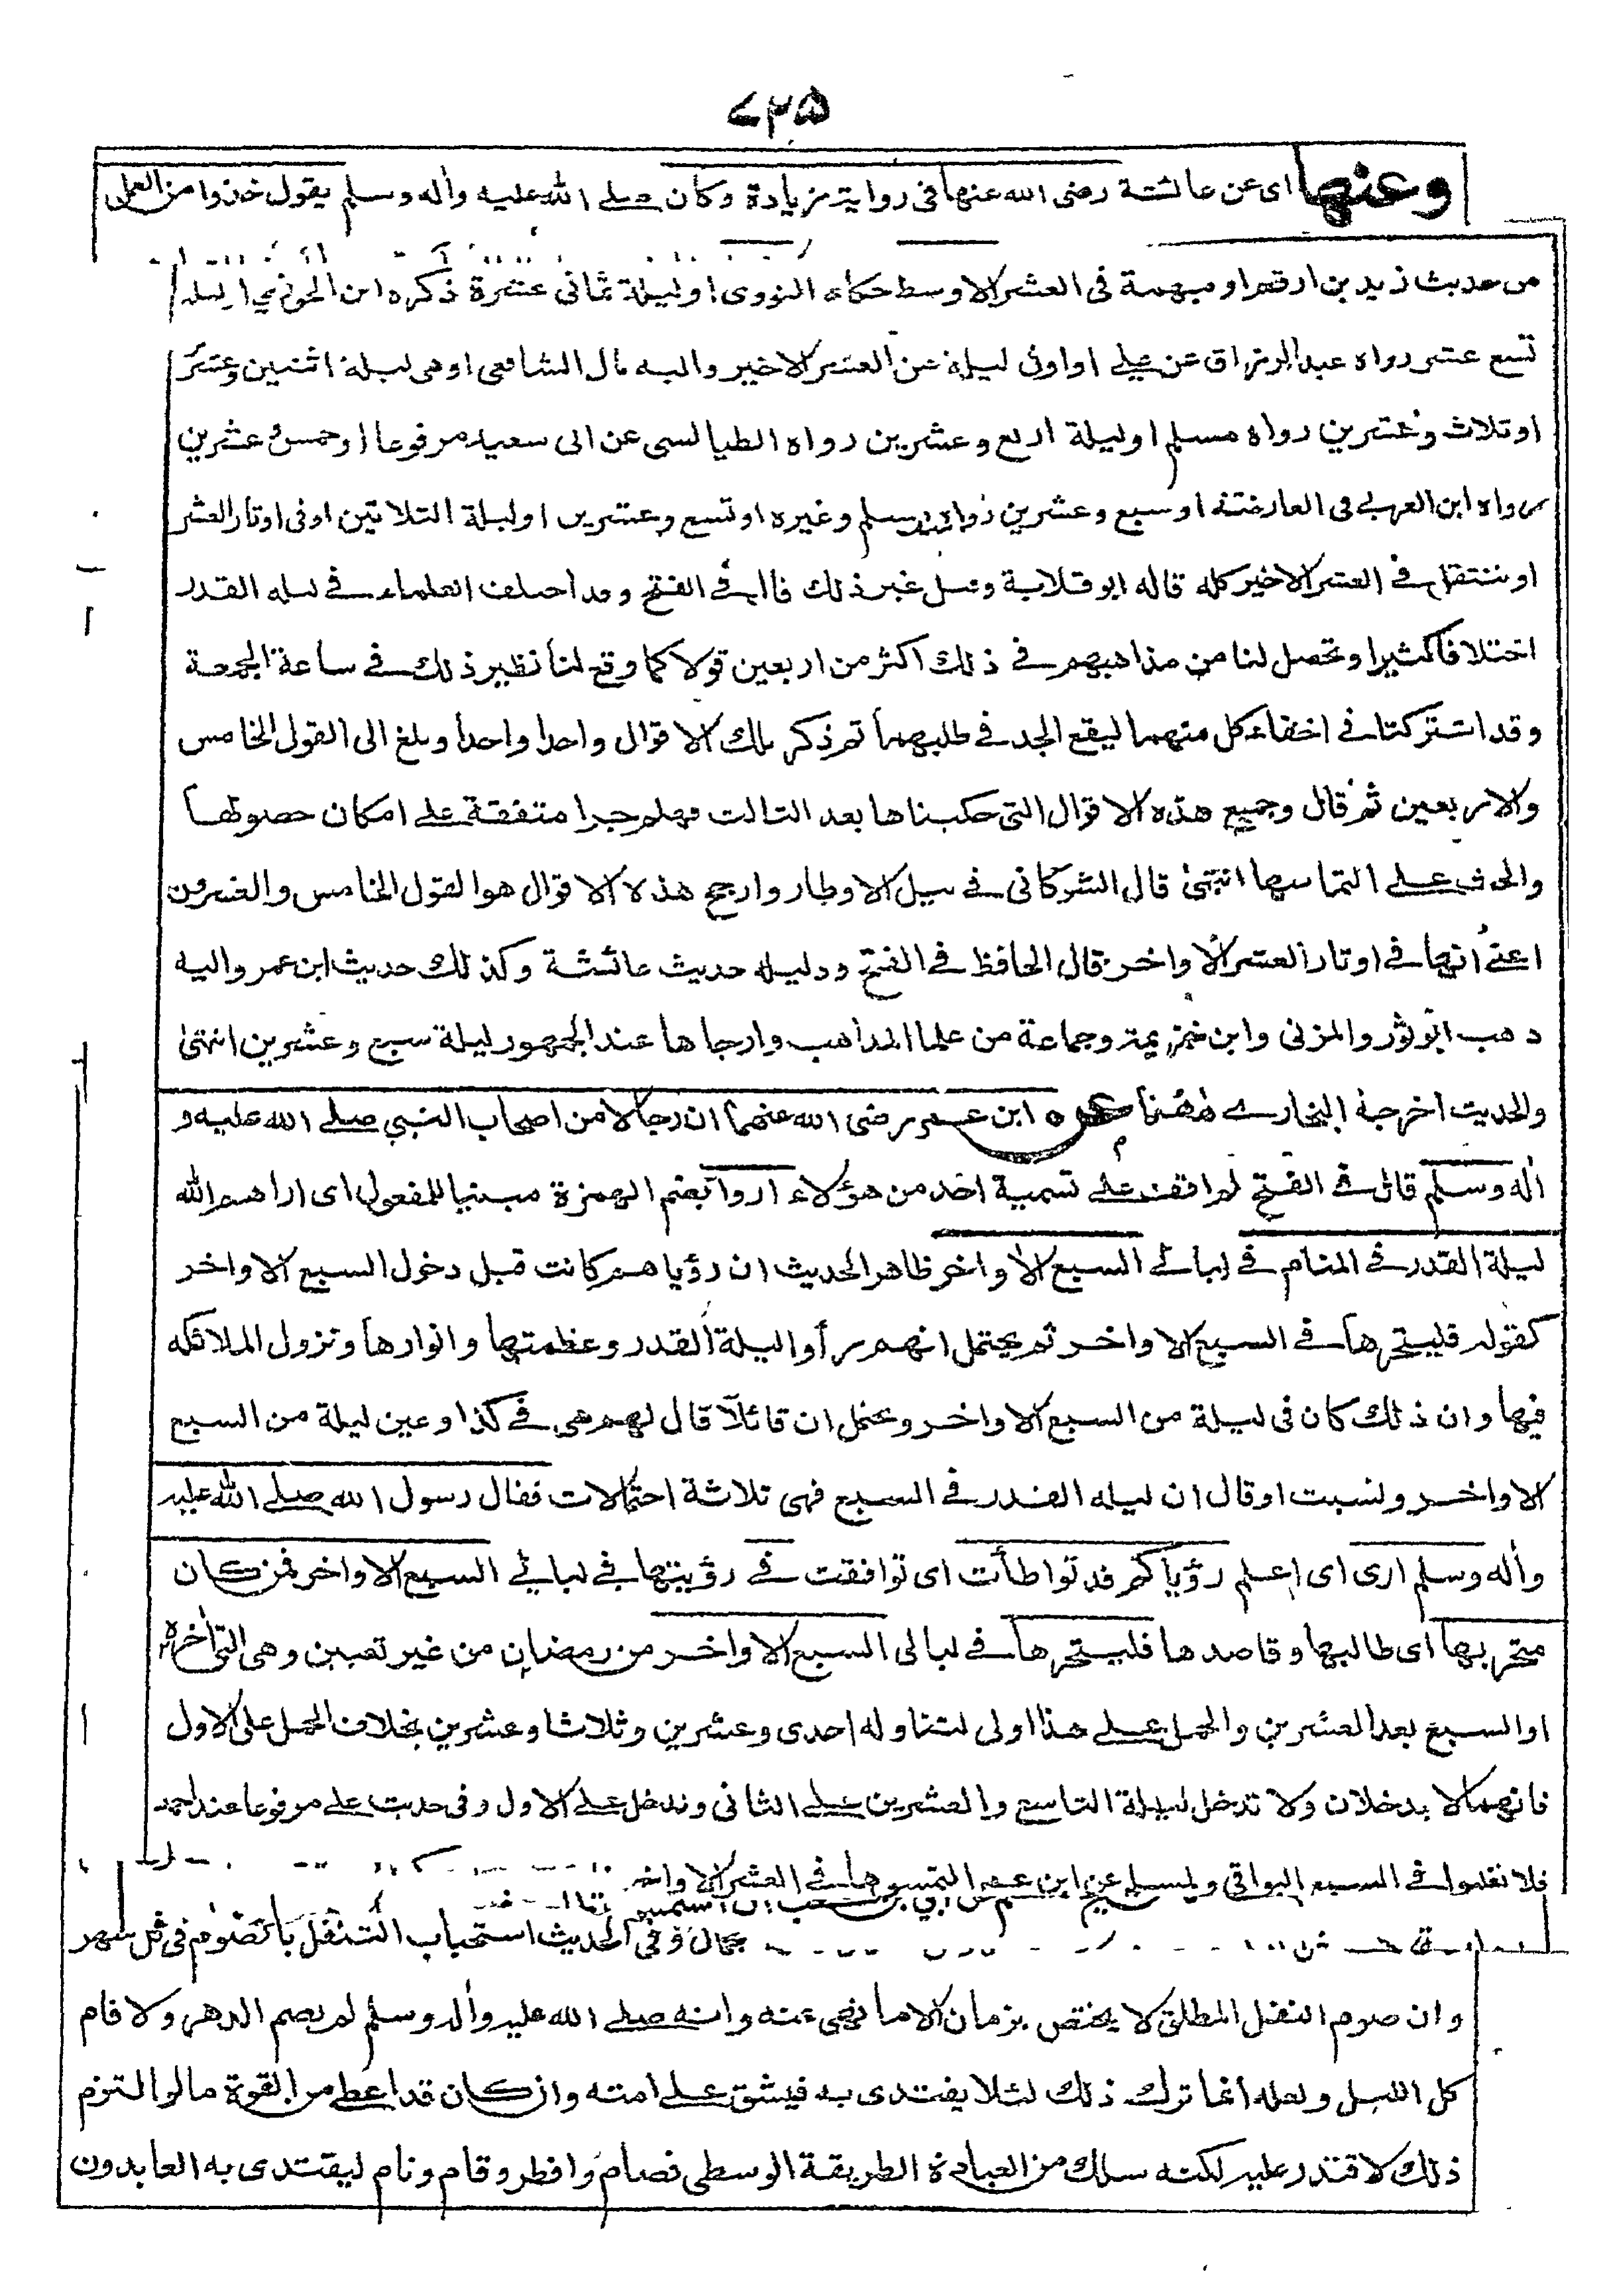 ٧٢٥
وعنها اى عن عائشة رضى الله عنها فى رواية زيادة وكان صلے الله عليه واٰله وسلم يقول خذوا من العمل
من حديث زيد بن ارقم او مبهمة فى العشر الاوسط حكاه النووى او ليلة ثمانى عشرة ذكره ابن الجوزي او ليلة
تسع عشر رواه عبد الرزاق عن علے او اوفى ليلة من العشر الاخير واليه مال الشافعى او هى ليلة اثنين وعشر
او ثلاث وعشرين رواه مسلم او ليلة اربع وعشرين رواه الطيالسى عن ابى سعيد مرفوعا او خمس وعشرين
رواه ابن العربي فى العارضة او سبع وعشرين رواه مسلم وغيره او تسع وعشرين او ليلة الثلاثين او فى اوتار العشر
او تنتقل فے العشر الاخير كله قاله ابو قلابة وقيل غير ذلك قال فے الفتح وقد اختلف العلماء فے ليلة القدر
اختلافا كثيرا وتحصل لنا من مذاهبهم فے ذلك اكثر من اربعين قولا كما وقع لنا نظير ذلك فے ساعة الجمعة
وقد اشتركتا فے اخفاء كل منهما ليقع الجد فے طلبهما ثم ذكر تلك الاقوال واحدا واحدا وبلغ الى القول الخامس
والاربعين ثم قال وجميع هذه الاقوال التى حكيناها بعد الثالث فهلم جرا متفقة علے امكان حصولها
والحث علے التماسها انتهىٰ قال الشوكانى فے نيل الاوطار وارجح هذه الاقوال هو القول الخامس والعشرون
اعنے انها فے اوتار العشر الاواخر قال الحافظ فے الفتح ودليله حديث عائشة وكذلك حديث ابن عمر واليه
ذهب ابو ثور والمزنى وابن خزيمة وجماعة من علما المذاهب وارجاها عند الجمهور ليلة سبع وعشرين انتهىٰ
والحديث اخرجه البخارے هٰهنا عن ابن عمر رضى الله عنهما ان رجالا من اصحاب النبي صلے الله عليه و
اٰله وسلم قال فے الفتح لم اقف علے تسمية احد من هؤلاء اروا بضم الهمزة مبنيا للمفعول اى اراهم الله
ليلة القدر فے المنام فے ليالے السبع الاواخر ظاهر الحديث ان رؤياهم كانت قبل دخول السبع الاواخر
كقوله فليتحرها فے السبع الاواخر ثم يحتمل انهم رأوا ليلة القدر وعظمتها وانوارها ونزول الملائكه
فيها وان ذلك كان فى ليلة من السبع الاواخر ويحتمل ان قائلاً قال لهم هى فے كذا وعين ليلة من السبع
الاواخر ونسيت او قال ان ليله القدر فے السبع فهى ثلاثة احتمالات فقال رسول الله صلے الله عليه
واٰله وسلم ارى اى اعلم رؤياكم قد تواطأت اى توافقت فے رؤيتها فے ليالے السبع الاواخر فمن كان
متحريها اى طالبها وقاصدها فليتحرها فے ليالى السبع الاواخر من رمضان من غير تعيين وهى التى اخره
او السبع بعد العشرين والحمل علے هذا اولى لتناوله احدى وعشرين وثلاثا وعشرين بخلاف الحمل على الاول
فانهما لا يدخلان ولا تدخل ليلة التاسع والعشرين علے الثانى وتدخل علے الاول وفى حديث علے مرفوعا عند احمد
فلا تغلبوا فے السبع البواقى ولمسلم عن ابن عمر التمسوها فے العشر الاواخر
وفى الحديث استحباب التنفل بالصوم فى كل شهر
وان صوم النفل المطلق لا يختص بزمان الا ما نهى عنه وانه صلے الله عليه واٰله وسلم لم يصم الدهر ولا قام
كل الليل ولعله انما ترك ذلك لئلا يقتدى به فيشق علے امته وان كان قد اعطے من القوة ما لو التزم
ذلك لاقتدر عليه لكنه سلك من العبادة الطريقة الوسطى فصام وافطر وقام ونام ليقتدى به العابدون